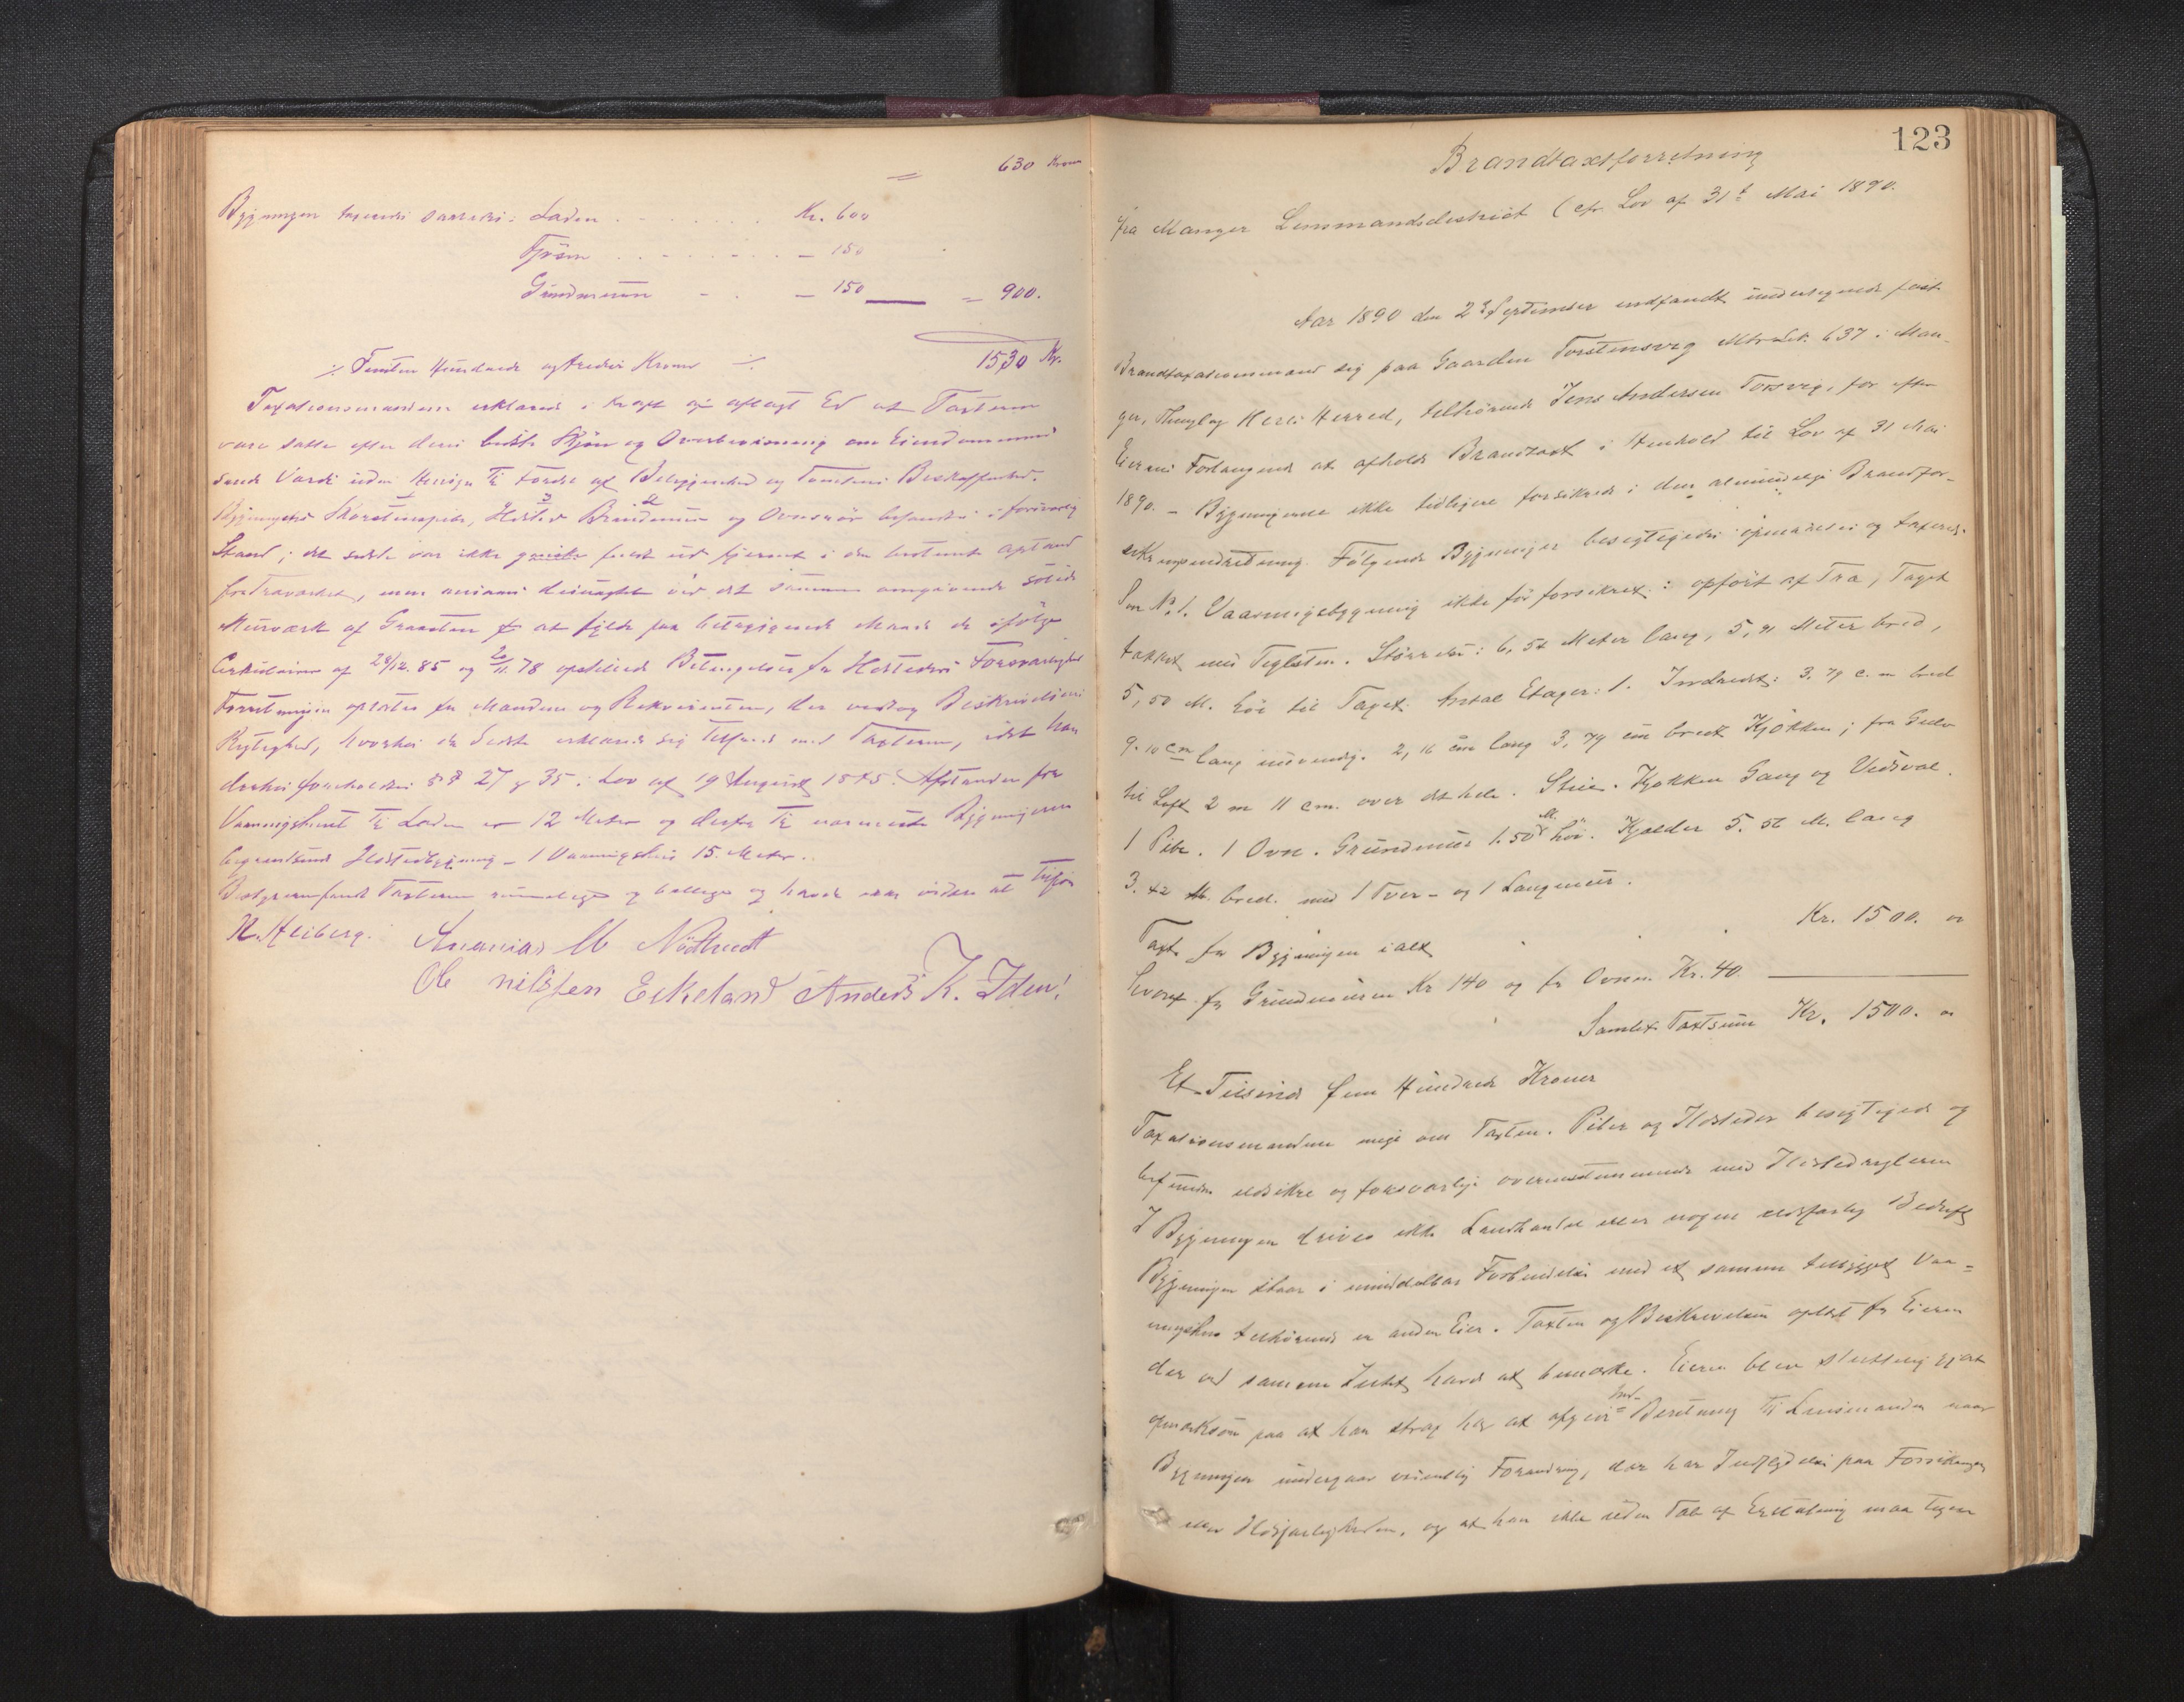 = 630 Kroner
Bygningen taxeredes saaledes: Laden . . . . . Kr. 600
Fjösen . . . . . . . – 150
Grundmuren - . – 150 = 900.
1530 Kr.
./. Femten Hundrede og tredive Kroner ./.
Taxationsmændene erklærede i Kraft af aflagt Ed at Taxterne
vare satte efter deres bedste Skjön og Overbevisning om Eiendommenes
sande Værdi uden Hensyn til Fordel af Beliggenhed og Tomtens Beskaffenhed.
Bygningens Skorstenspibe, Ildsted Brandmur og Ovnsrör befandtes i forsvarlig
Stand; det sidste var ikke ganske fjernet i den bestemte afstand
fra Træværket, men ansaaes desuagtet ved det samme omgivende solide
Murværk af Graasten at fylde paa betryggende Maade de ifölge
Cirkulærer af 28/12. 85 og 20/11. 78 opstillede Betingelser for Ildstedets Forsvarlighed
Forretningen oplæstes for Mændene og Rekvirenten, der vedtog Beskrivelsens
Rigtighed, hvorhos den sidste erklærede sig tilfreds med Taxterne, idet han
derhos foreholdtes §§ 27 og 35 i Lov af 19 August 1845. Afstanden fra
Vaaningshuset til Laden er 12 Meter og derfra til nærmeste Bygningen
Ildstedbygning – 1 Vaaningshus 15. Meter.
Bestyreren fandt Taxterne rimelige og billige og havde intet videre at tilföie
N. Heiberg. Ananias M Nödtvedt
Ole nilssen Eikeland Anders K. Iden!
123
Brandtaxtforretning
fra Manger Lensmandsdistrict (cfr Lov af 31t Mai 1890.
Aar 1890 den 2d September indfandt undertegnede faste
Brandtaxationsmænd sig paa Gaarden Torstensvig Mtr. Lit. 637 i Man-
ger, Thinglag Herlö Herred, tilhörende Jens Andersen Torsvig, for efter
Eierens Forlangende at afholde Brandtaxt i Henhold til Lov af 31 Mai
1890. – Bygningerne ikke tidligere forsikrede i den almindelige Brandfor-
sikringsindretning. Fölgende Bygninger besigtigedes opmaaltes og taxeredes.
Som No. 1. Vaaningsbygning ikke för forsikret: opfört af Træ, Taget
tækket med Teglsten. Störrelse: 6,52 Meter lang, 5,91 Meter bred,
5,50 M. höi til Taget. Antal Etager: 1. Indredet: 3.79 c.m bred
9.10 cm lang indvendig. 2,16 cm lang 3,79 cm bredt Kjökken; fra Gulv
til Loft 2 m 11 cm. over det hele. Stue. Kjökken Gang og Vedsval.
1 Pibe. 1 Ovn. Grundmur 1.50 M. höi. Kjælder 5.52 M. lang
3.42 M. bred. med 1 Tver- og 1 Langmur.
Taxt for Bygningen ialt . . Kr. 1500. 00
hvoraf for Grundmuren Kr 140 og for Ovnen Kr. 40
Samlet Taxtsum Kr. 1500. 00
Et Tusinde fem Hundrede Kroner
Taxationsmændene enige om Taxten. Piber og Ildsteder besigtigede og
befundne ildsikre og forsvarlige overensstemmende med Ildstedreglerne
I Bygningen drives ikke Landhandel eller nogen ildsfarlig Bedrift
Bygningen staar i umiddelbar Forbindelse med et sammen tilbygget Vaa-
ningshus tilhörende en anden Eier. Taxten og Beskrivelsen oplæst for Eieren
der ved samme Intet havde at bemærke. Eieren blev sluttelig gjort
opmærksom paa at han strax har at afgive Ind-Beretning til Lensmanden naar
Bygningen undergaar væsentlig Forandring, der har Indflydelse paa Forsikringen
eller Ildsfarligheden, og at han ikke uden Tab af Erstatning maa tegne